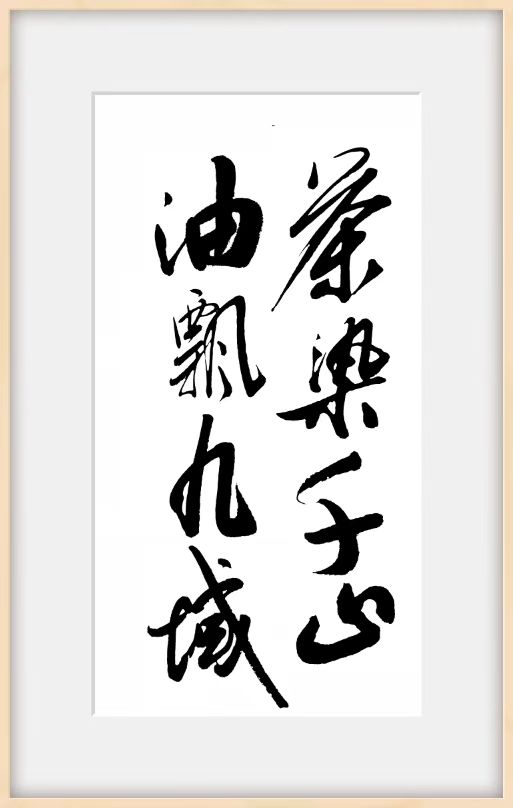 茶染千山
油飘九域